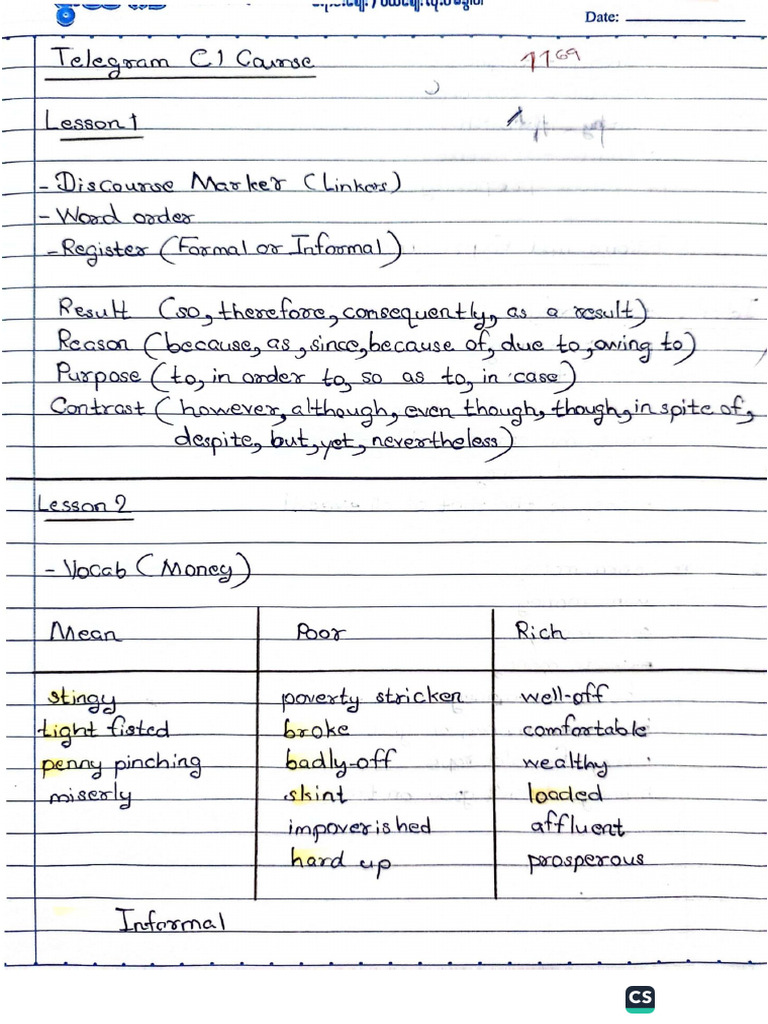 Date:
Telegram C1 Course
Lesson 1
- Discourse Marker (Linkers)
- Word order
- Register (Formal or Informal)
Result (so, therefore, consequently, as a result)
Reason (because, as, since, because of, due to, owing to)
Purpose (to, in order to, so as to, in case)
Contrast (however, although, even though, though, in spite of,
despite, but, yet, nevertheless)
Lesson 2
- Vocab (Money)
Mean Poor Rich
stingy poverty stricken well-off
tight fisted broke comfortable
penny pinching badly-off wealthy
miserly skint loaded
impoverished affluent
hard up prosperous
Informal
CS